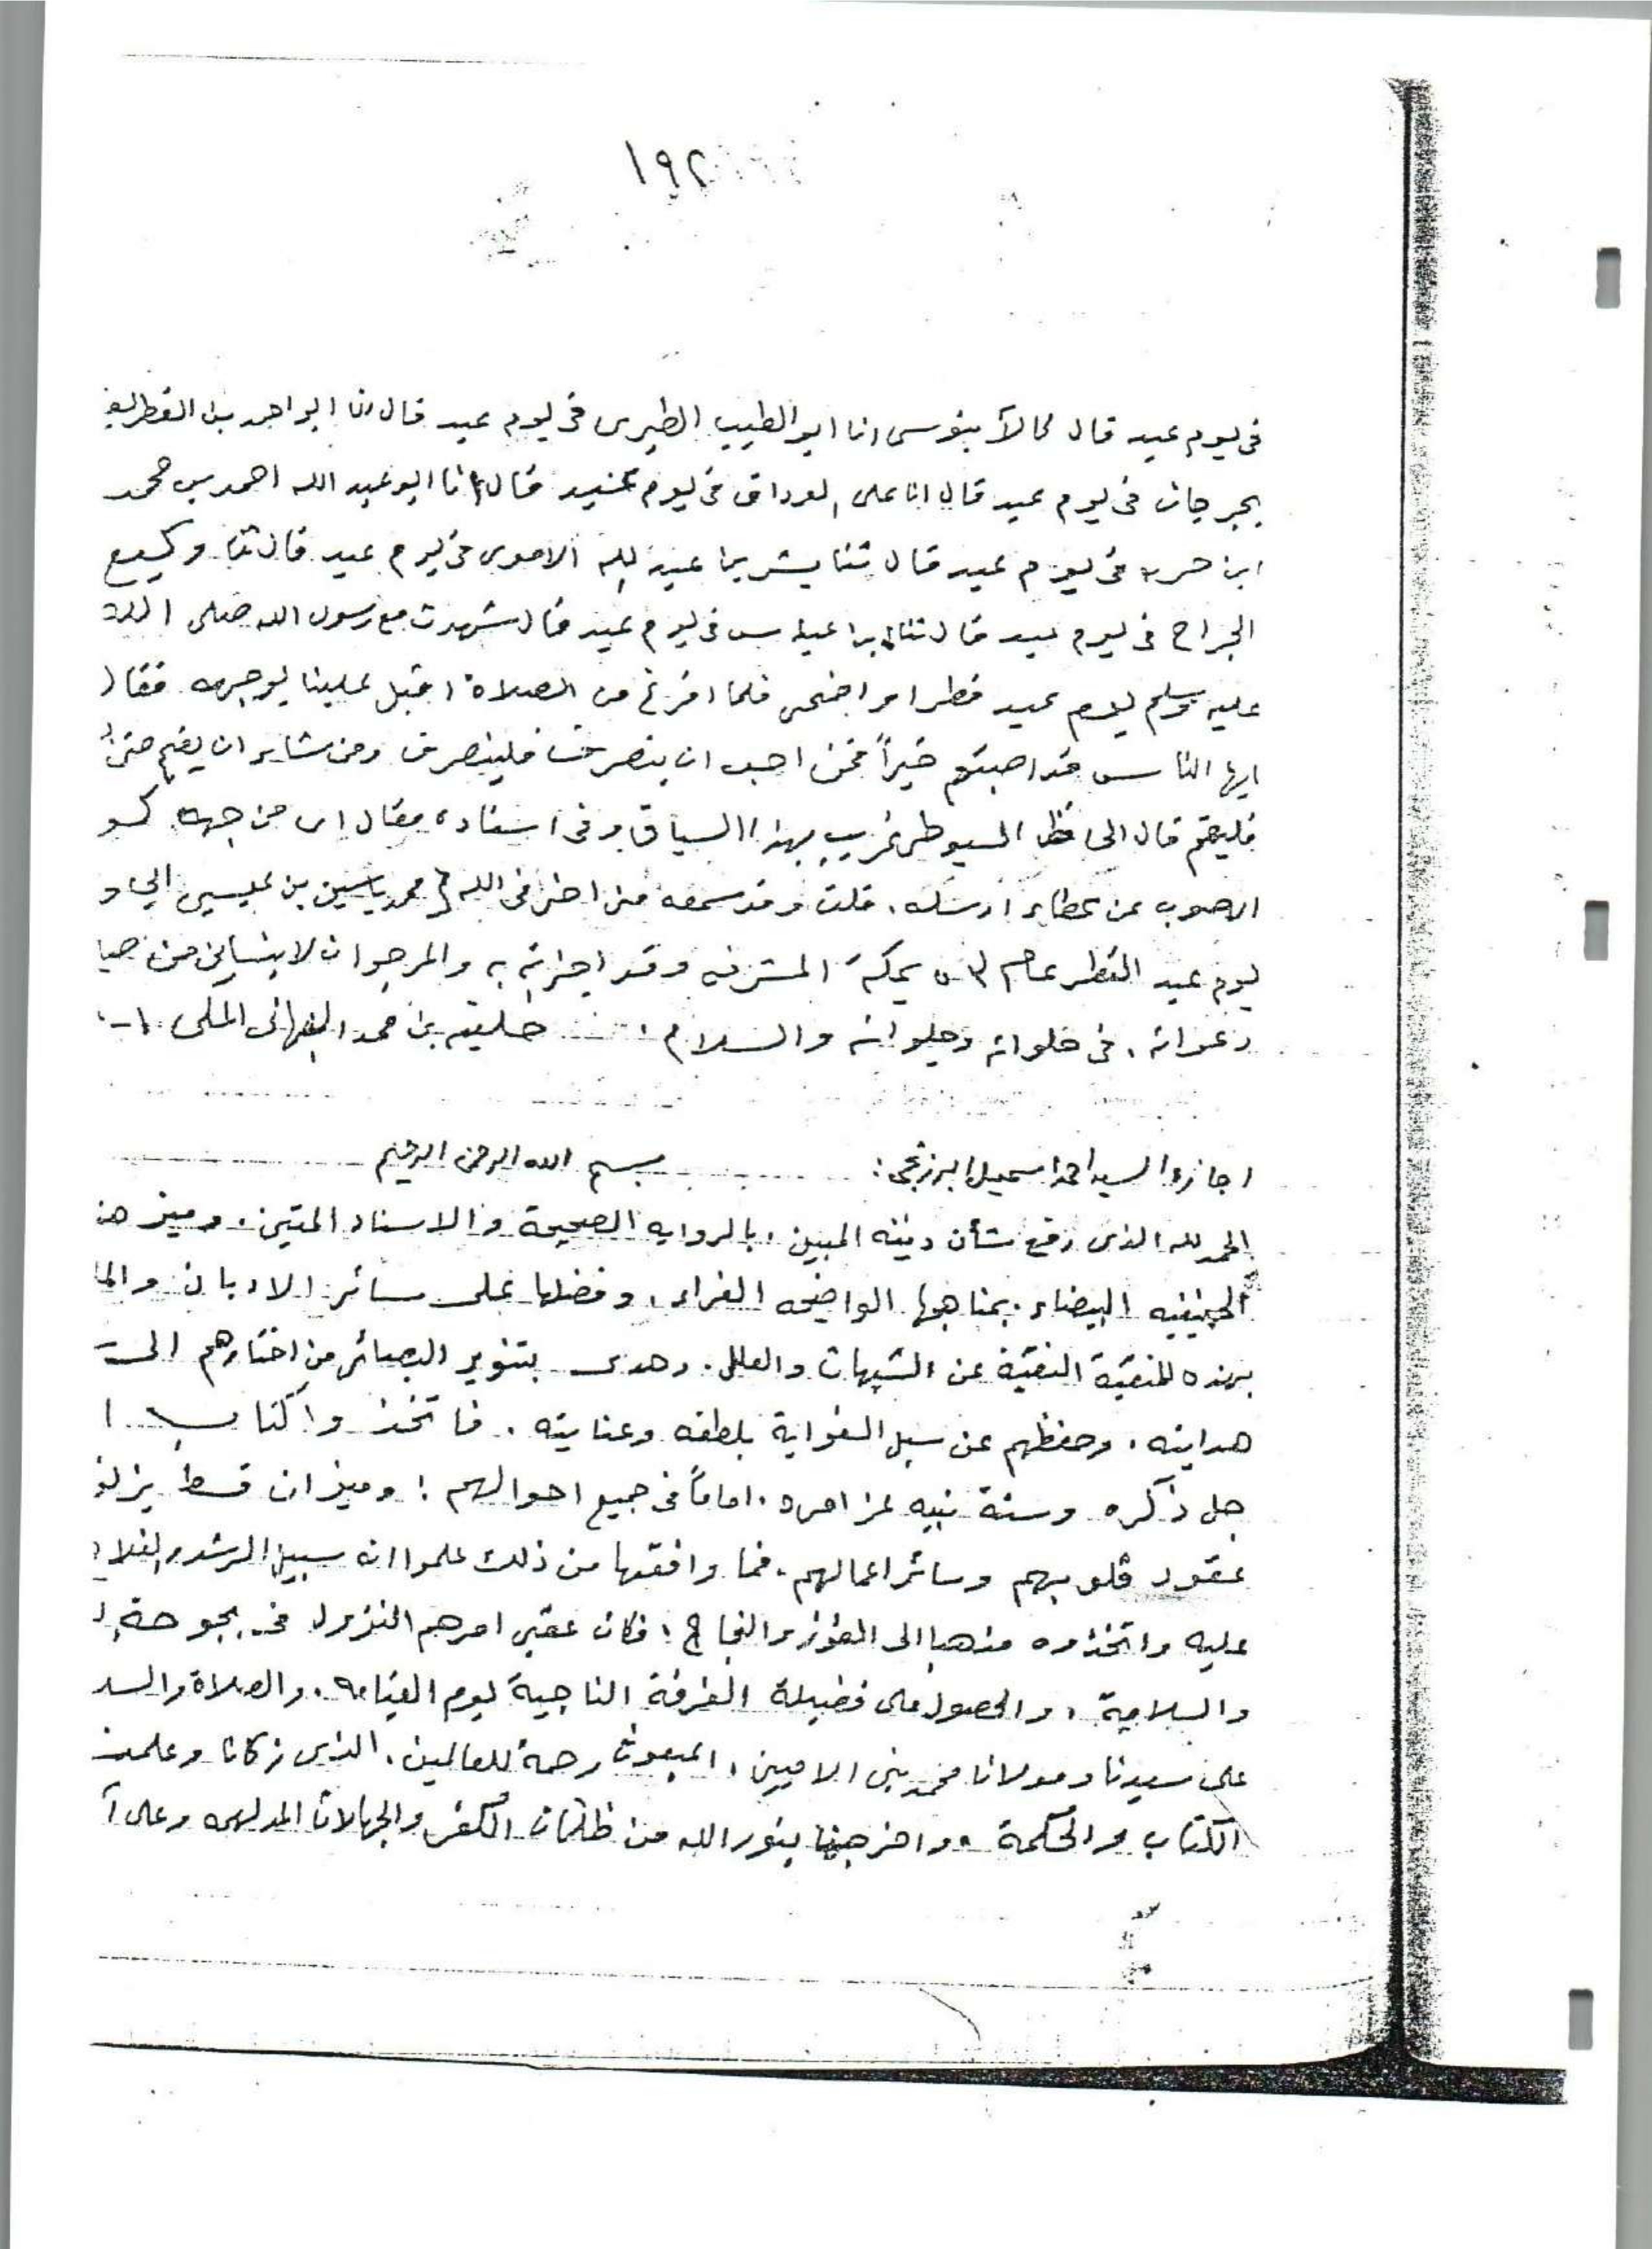 ١٩٢
فى يوم عيد قال انا ابو الطيب الطبرى فى يوم عيد قال انا ابو احمد بن
بجرجان فى يوم عيد قال انا على الوراق فى يوم عيد قال انا ابو عبد الله احمد بن محمد
ابن فى يوم عيد قال ثنا بشر بن عبد الاموى فى يوم عيد قال ثنا وكيع
الجراح فى يوم عيد قال ثنا فى يوم عيد قال شهدت مع رسول الله صلى الله
عليه وسلم يوم عيد فطر او اضحى فلما افرغ من الصلاة اقبل علينا بوجهه فقال
ايها الناس قد اصبتم خيراً فمن احب ان ينصرف فلينصرف ومن شاء ان يقيم حتى
فليقم قال الحافظ السيوطى غريب بهذا السياق وفى اسناده مقال اى من جهة
عن عطاء ارسله. قلت وقد سمعه منى اخى فى الله محمد ياسين بن عيسى
يوم عيد الفطر عام بمكة المشرفه وقد اجزته به والمرجو ان لا ينسانى من
دعواته. فى خلواته وجلواته والسلام. خليفه بن حمد النبهانى
اجازة السيد احمد اسمعيل البرزنجى: بسم الله الرحمن الرحيم
الحمد لله الذى رفع شأن دينه المبين. بالروايه الصحيحة والاسناد المتين. وميز
الحنيفيه البيضاء. بمناهجها الواضحه الغراء. وفضلها على سائر الاديان
بهذه المنقبة النقية عن الشبهات والعلل. وهدى بتنوير البصائر من اختارهم
هدايته. وحفظهم عن سبل الغواية بلطفه وعنايته. فاتخذوا كتاب ا
جل ذكره وسنة نبيه عز امره. اماماً فى جميع احوالهم! وميزان قسط
عقود قلوبهم وسائر اعمالهم. فما وافقها من ذلك علموا انه سبيل الرشد والفلا
عليه واتخذوه مذهبا الى الفوز والنجاح؛ فكان عقبى امرهم النزول فى بحبوحة
والسلامة، والحصول على فضيلة الفرقة الناجية يوم القيامه. والصلاة والسـ
على سيدنا ومولانا محمد نبى الاميين. المبعوث رحمة للعالمين. الذى زكانا وعلمنـ
الكتاب والحكمة. واخرجنا بنور الله من ظلمات الكفر والجهالات المدلهمه وعلى آ